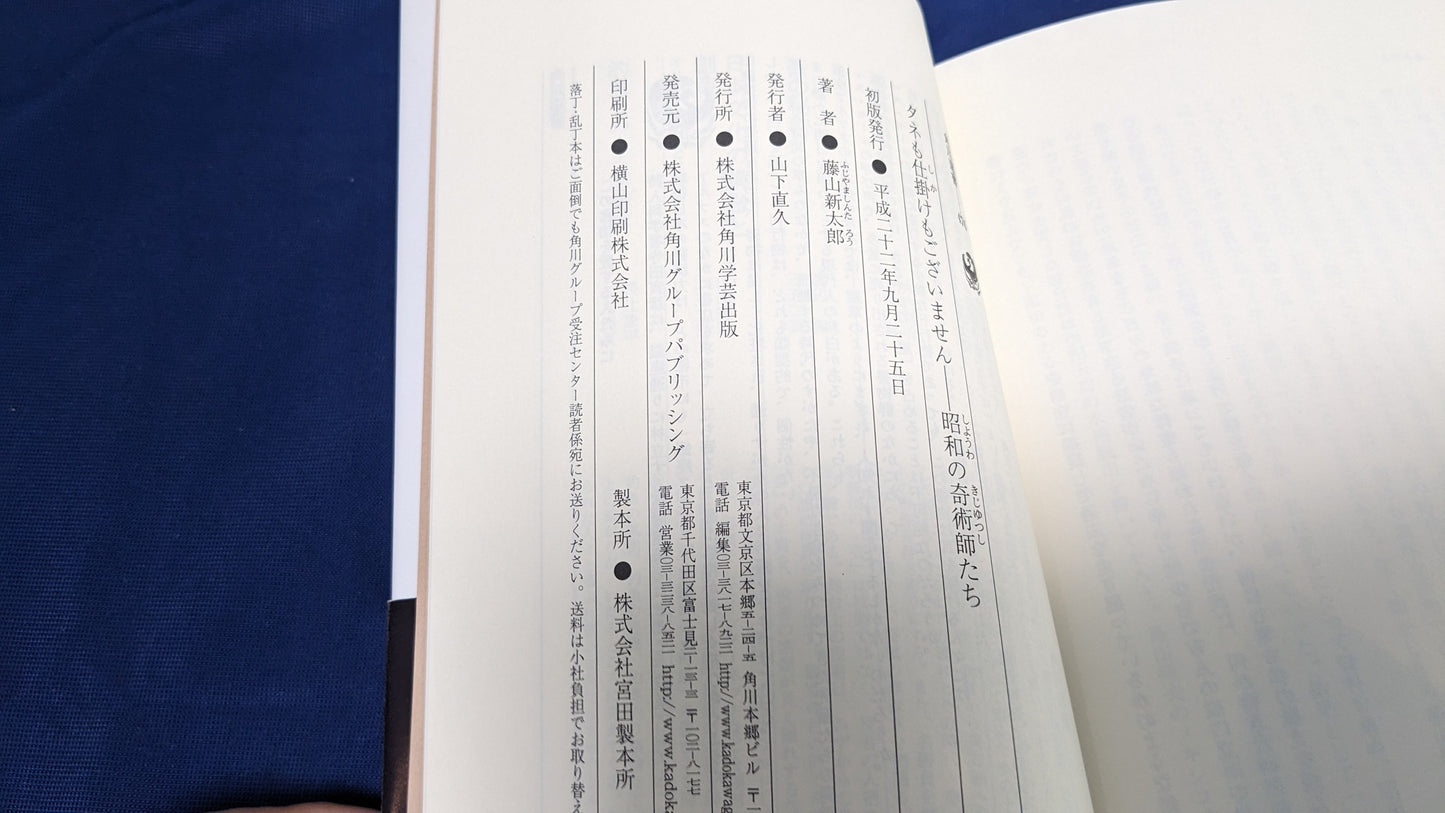 タネも仕掛けもございません――昭和の奇術師たち
しか
しようわ
きじゆつし
初版発行●平成二十二年九月二十五日
著　者●藤山新太郎
ふじやましんたろう
発行者●山下直久
発行所●株式会社角川学芸出版
東京都文京区本郷五-二四-五　角川本郷ビル　〒一
電話　編集〇三-三八一七-八九二二　http://www.kadokawag
発売元●株式会社角川グループパブリッシング
東京都千代田区富士見二-一三-三　〒一〇二-八一七七
電話　営業〇三-三二三八-八五二一　http://www.kadoka
印刷所●横山印刷株式会社　製本所●株式会社宮田製本所
落丁・乱丁本はご面倒でも角川グループ受注センター読者係宛にお送りください。送料は小社負担でお取り替え